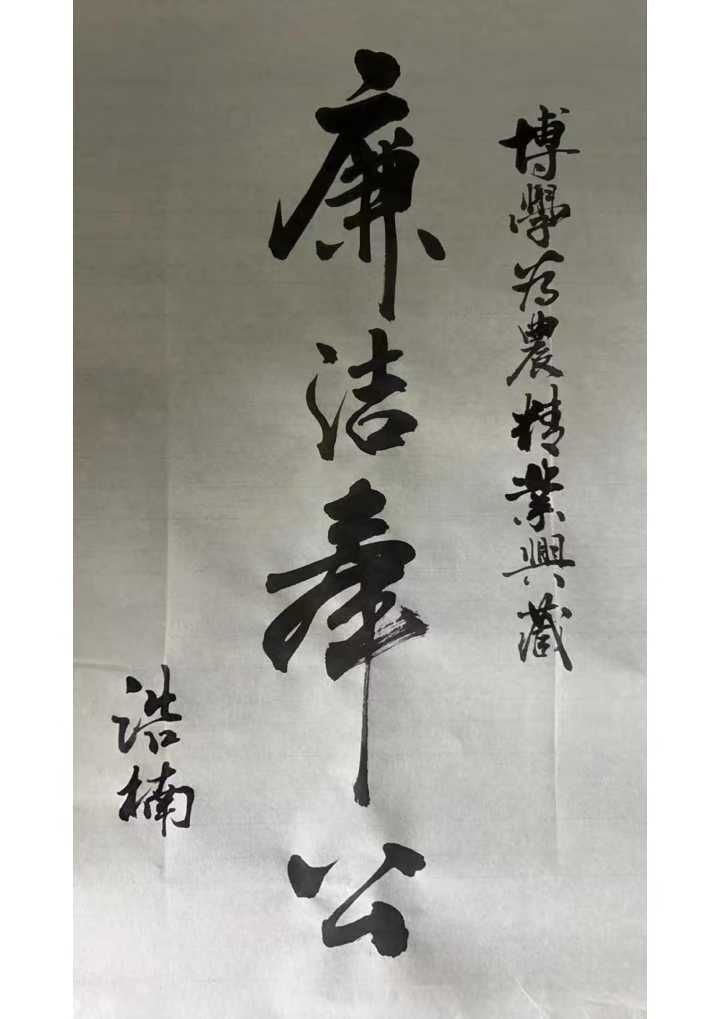 博學为農精業興藏
廉洁奉公
浩楠